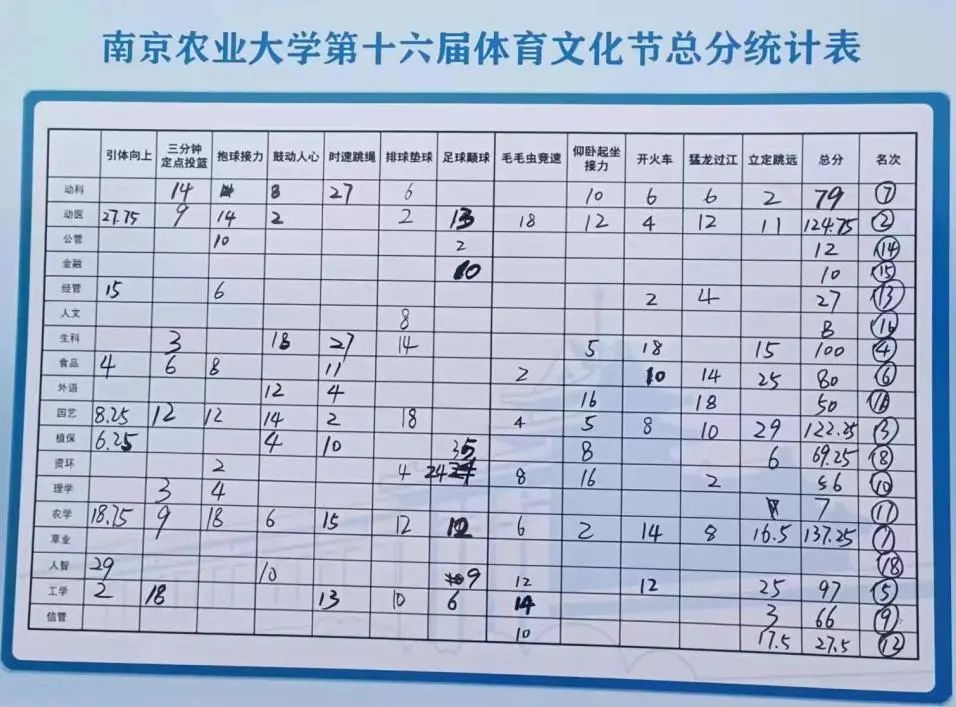 南京农业大学第十六届体育文化节总分统计表
引体向上 三分钟定点投篮 抱球接力 鼓动人心 时速跳绳 排球垫球 足球颠球 毛毛虫竞速 仰卧起坐接力 开火车 猛龙过江 立定跳远 总分 名次
动科 14 8 27 6 10 6 6 2 79 ⑦
动医 27.75 9 14 2 2 13 18 12 4 12 11 124.75 ②
公管 10 2 12 ⑭
金融 10 10 ⑮
经管 15 6 2 4 27 ⑬
人文 8 8 ⑯
生科 3 18 27 14 5 18 15 100 ④
食品 4 6 8 11 2 10 14 25 80 ⑥
外语 12 4 16 18 50
园艺 8.25 12 12 14 2 18 4 5 8 10 29 122.25 ③
植保 6.25 4 10 35 8 6 69.25 ⑧
资环 2 4 24 8 16 2 56 ⑩
理学 3 4 7 ⑰
农学 18.75 9 18 6 15 12 12 6 2 14 8 16.5 137.25 ①
草业 ⑱
人智 29 10 9 12 12 25 97 ⑤
工学 2 18 13 10 6 14 3 66 ⑨
信管 10 17.5 27.5 ⑫